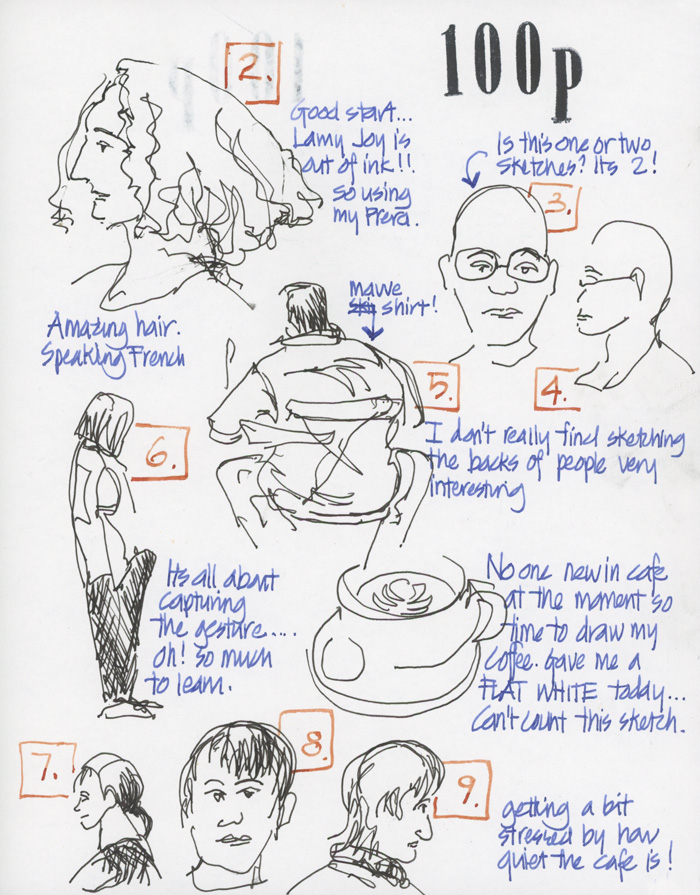 100p
2.
Good start...
Lamy Joy is
out of ink!!
so using
my Prera.
Is this one or two
sketches? Its 2!
3.
Amazing hair.
Speaking French
mauve
shirt!
5.
4.
I don't really find sketching
the backs of people very
interesting
6.
Its all about
capturing
the gesture....
oh! so much
to learn.
No one new in cafe
at the moment so
time to draw my
coffee. Gave me a
FLAT WHITE today...
Can't count this sketch.
7.
8.
9.
getting a bit
stressed by how
quiet the cafe is!